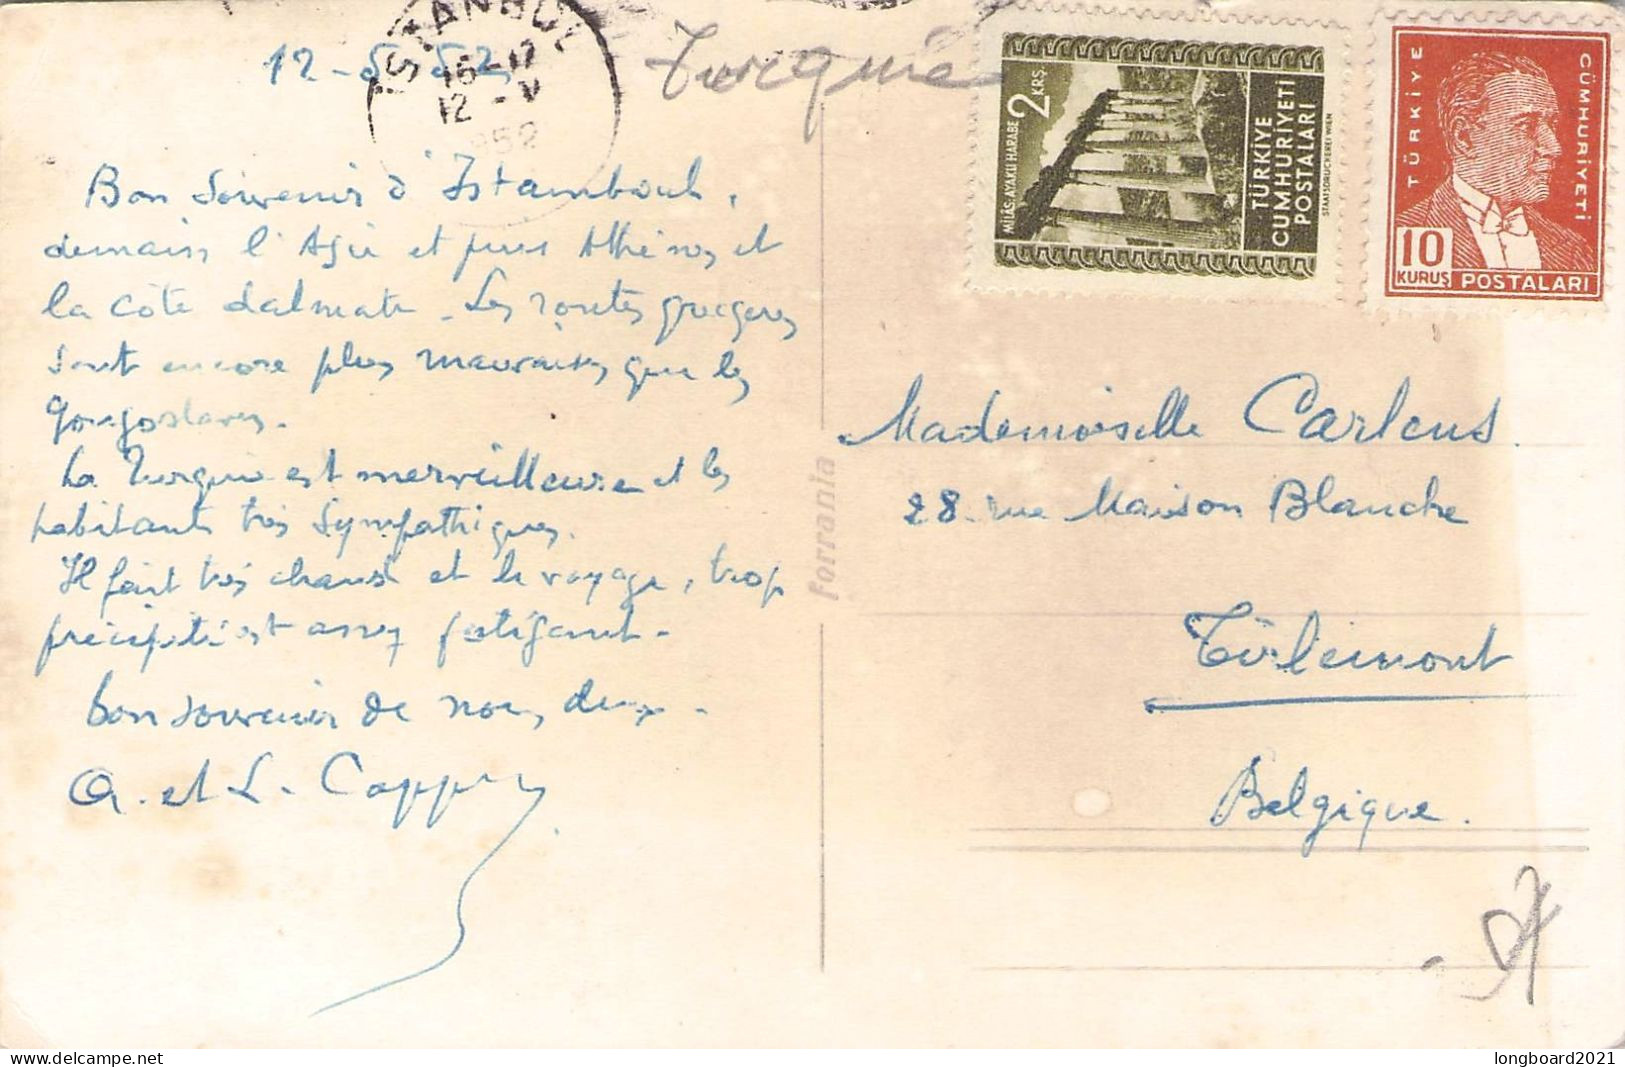 12-5-52
ISTANBUL
16-17
12-V
1952
Turquie
Bon Souvenir d'Istamboul,
demain l'Asie et puis Athènes et
la côte dalmate. Les routes grecques
sont encore plus mauvaises que les
yougoslaves.
La Turquie est merveilleuse et les
habitants très sympathiques.
Il fait très chaud et le voyage, trop
précipité est assez fatigant.
bon souvenir de nous deux.
et L.
ferrania
MİLÂS: AYAKLI HARABE 2 KRŞ.
TÜRKİYE
CUMHURİYETİ
POSTALARI
STAATSDRUCKEREI WIEN
TÜRKİYE
CÜMHURİYETİ
10
KURUŞ POSTALARI
Mademoiselle Carlens.
28 rue Maison Blanche
Tirlemont
Belgique.
longboard2021